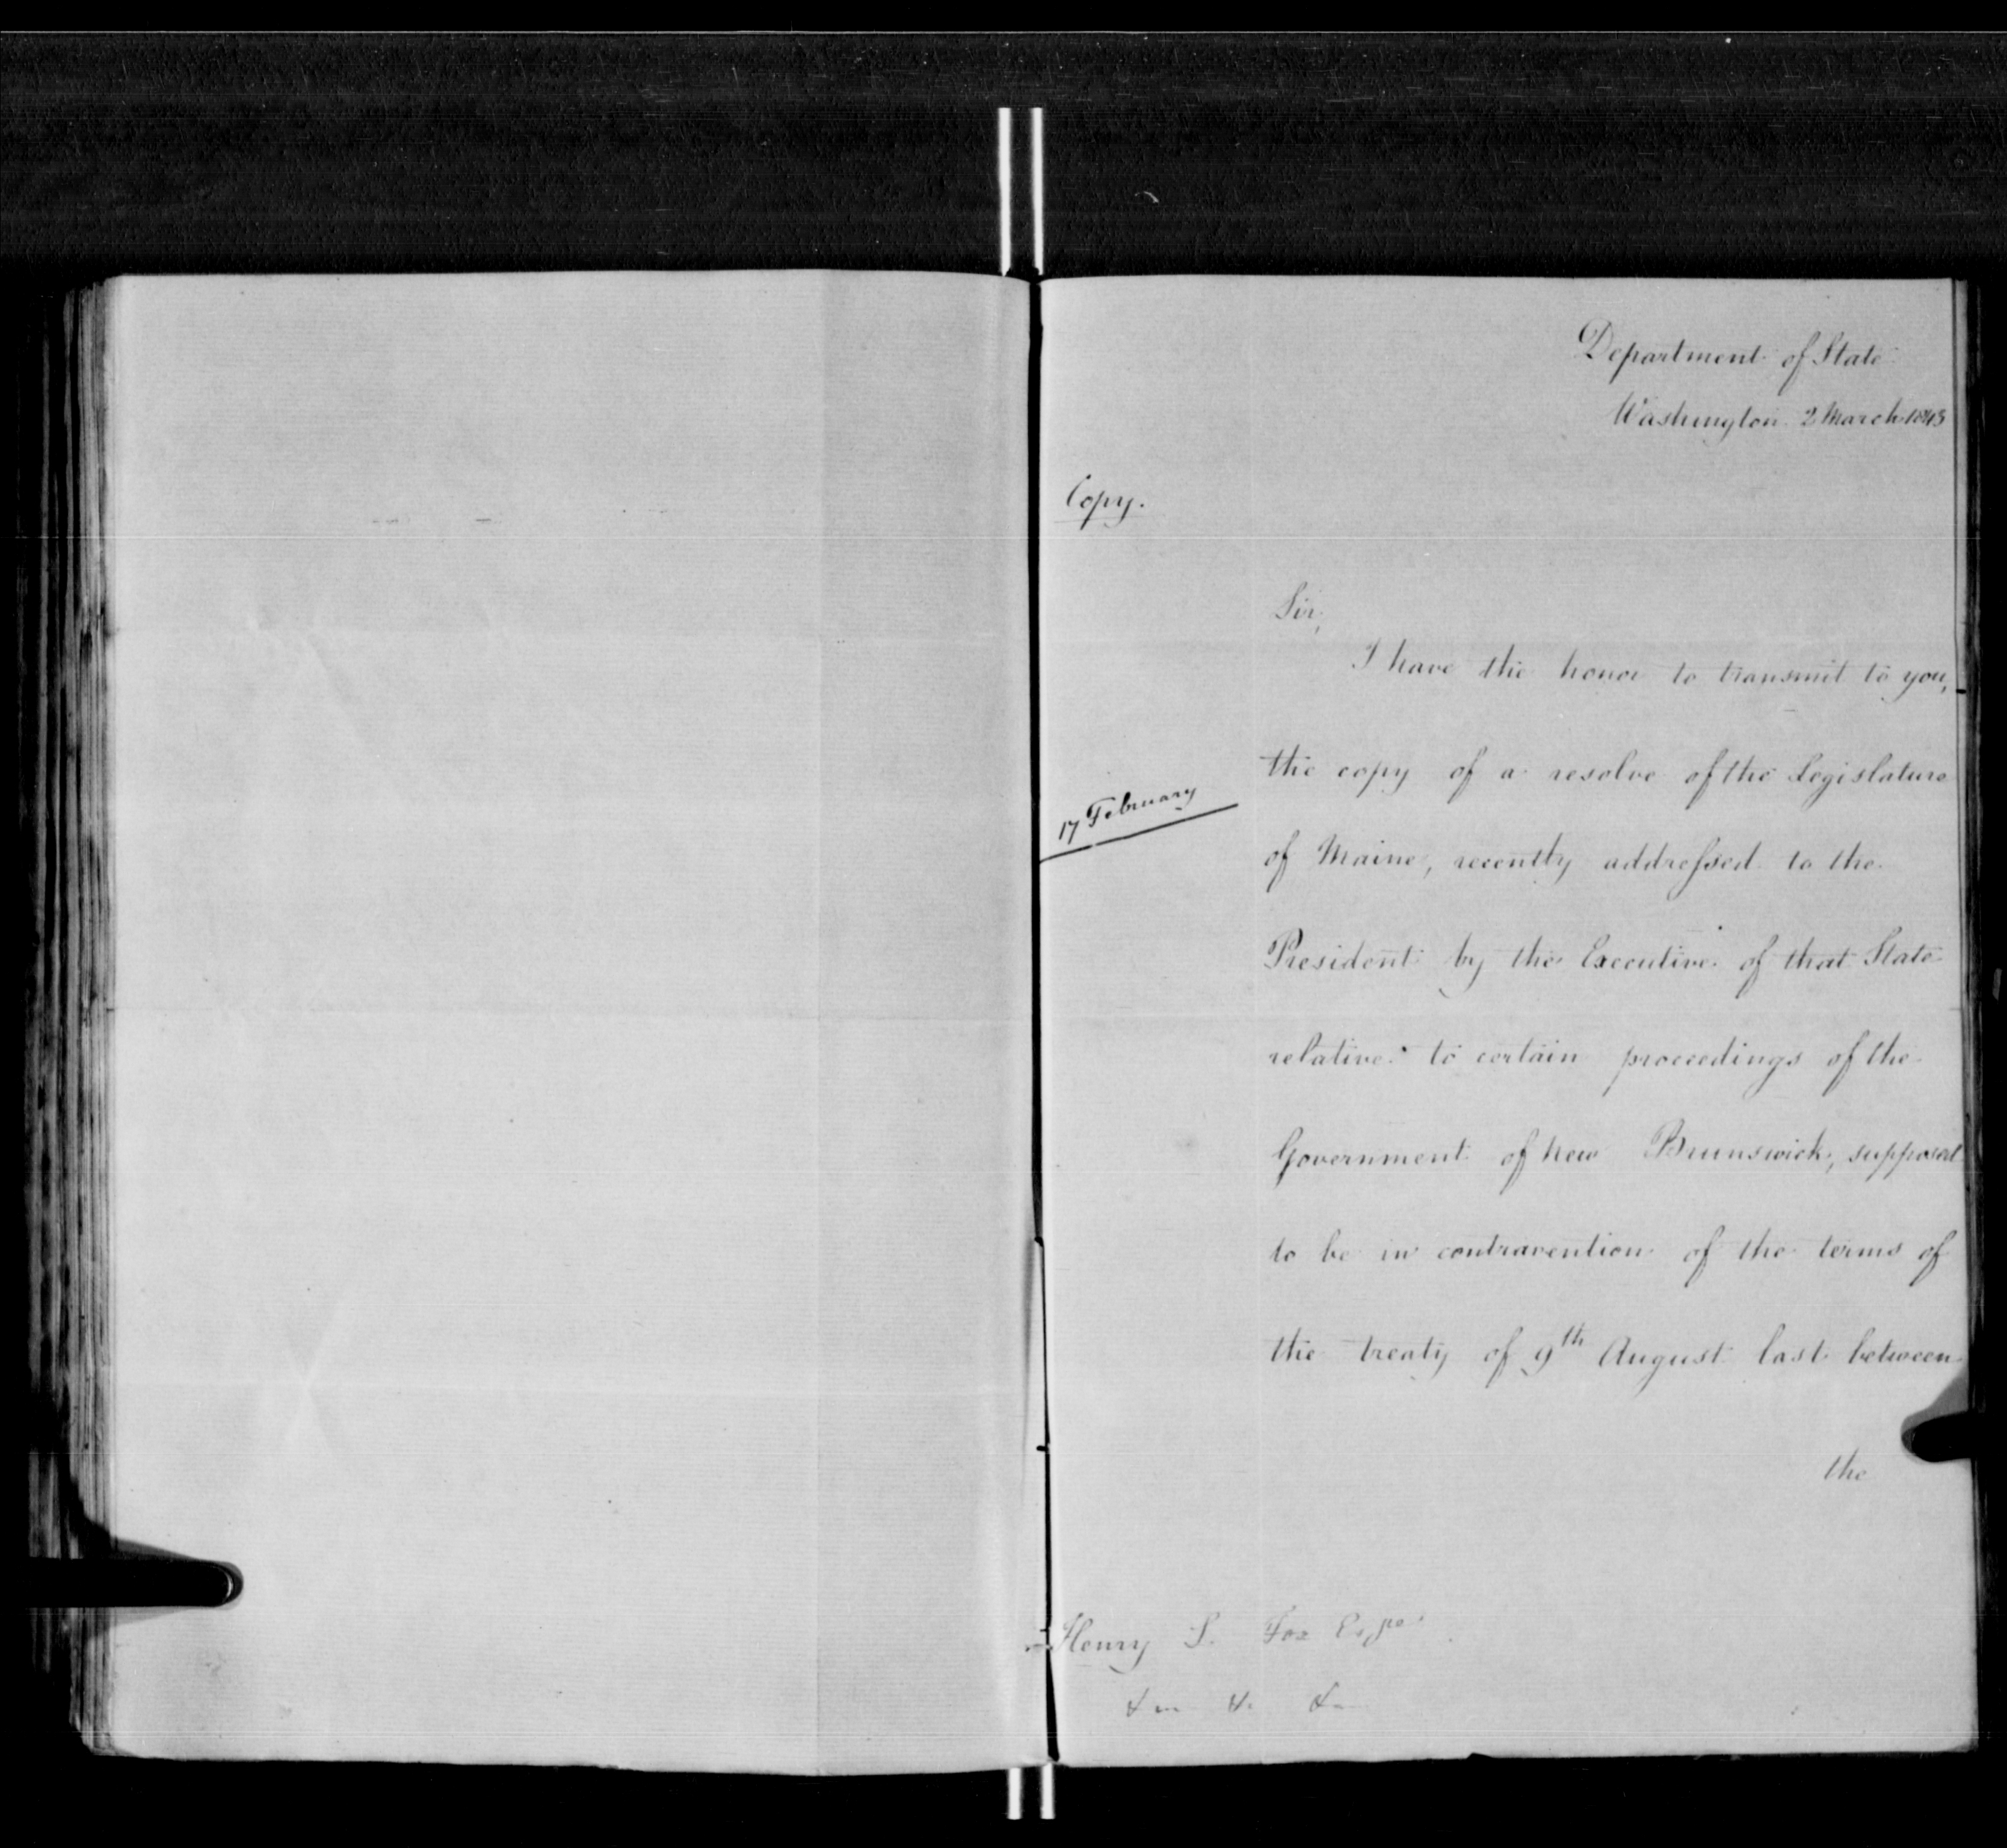 Department of State
Washington 2 March 1843
Copy.
Sir,
I have the honor to transmit to you,
the copy of a resolve of the Legislature
17 February
of Maine, recently addressed to the
President by the Executive of that State
relative to certain proceedings of the
Government of New Brunswick, supposed
to be in contravention of the terms of
the treaty of 9th August last between
the
Henry S. Fox Esqre
&c &c &c